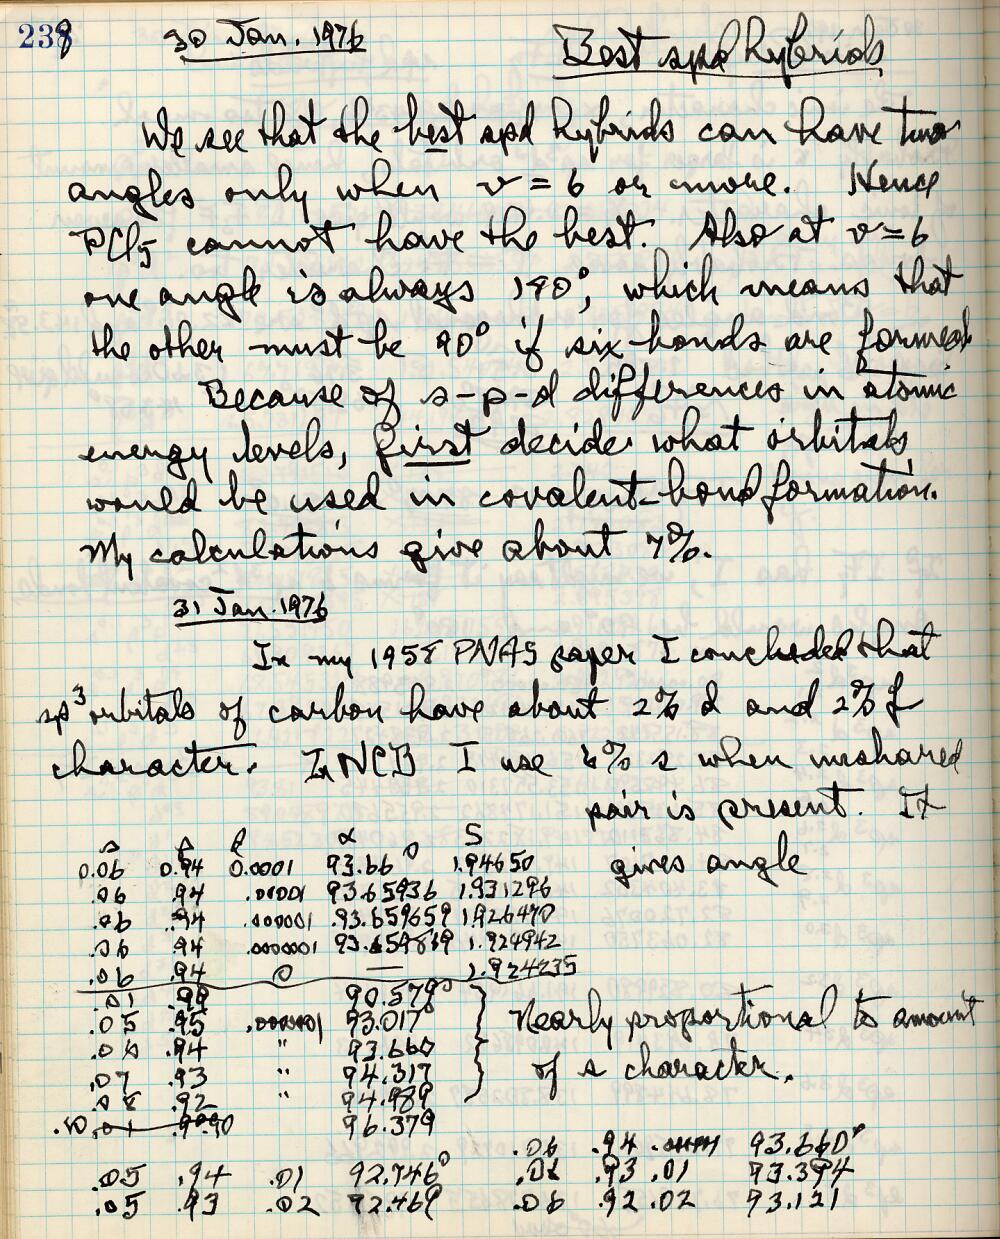 238
30 Jan. 1976
Best spd hybrids
We see that the best spd hybrids can have two
angles only when v = 6 or more. Hence
PCl5 cannot have the best. Also at v=6
one angle is always 180°, which means that
the other must be 90° if six bonds are formed
Because of s-p-d differences in atomic
energy levels, first decide what orbitals
would be used in covalent-bond formation.
My calculations give about 7%.
31 Jan. 1976
In my 1958 PNAS paper I concluded that
sp3 orbitals of carbon have about 2% d and 2% f
character. In NCB I use 6% s when unshared
pair is present. It
gives angle
s p d α S
0.06 0.94 0.0001 93.66° 1.94650
.06 .94 .00001 93.65936 1.931296
.06 .94 .000001 93.659659 1.926470
.06 .94 .0000001 1.924942
.06 .94 0 — 1.924235
.01 .99 90.579°
.05 .95 93.017°
.06 .94 " 93.660
.07 .93 " 94.317
.08 .92 " 94.989
.10 .90 96.379
Nearly proportional to amount
of s character.
.05 .94 .01 92.746°
.05 .93 .02 92.469
.06 .94 93.660°
.06 .93 .01 93.394
.06 .92 .02 93.121